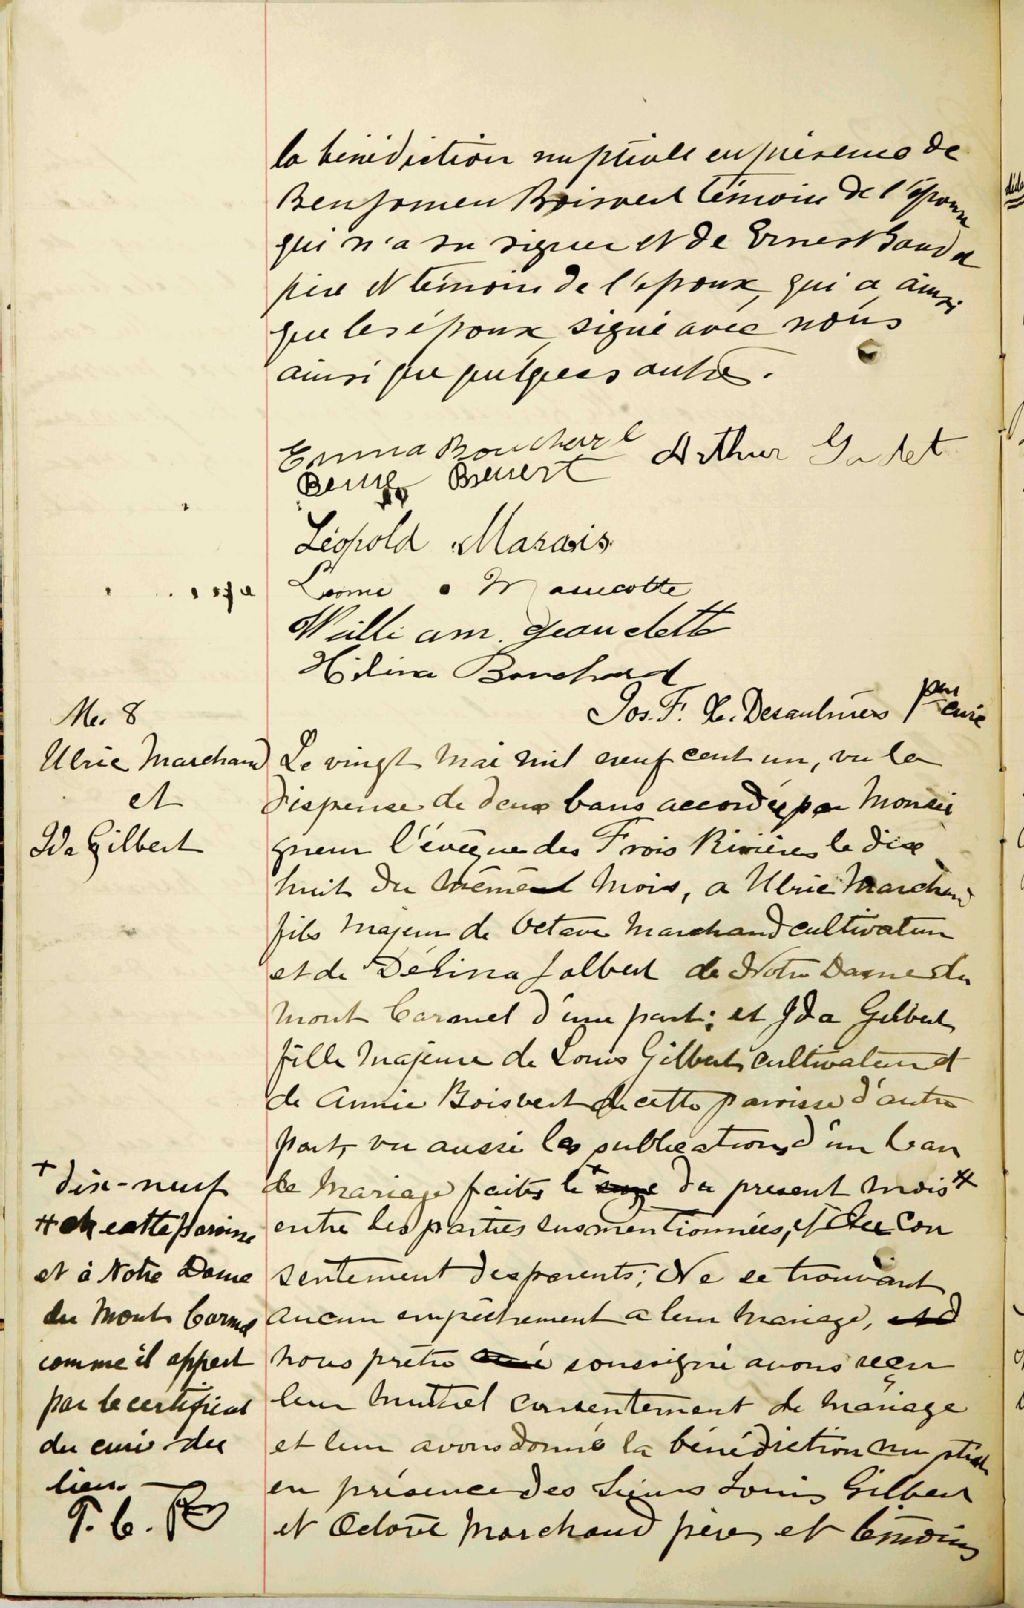 la bénédiction nuptiale en présence de
Benjamen Boisvert témoin de l'épouse
qui n'a su signer et de Ernest
père et témoin de l'époux, qui a ainsi
que les époux, signé avec nous
ainsi que quelques autres.
Emma Bouchard Arthur
Léopold Marais
Marcotte
William Geaudette
Bouchard
Jos. F. X. Desaulniers ptre curé
M. 8
Ulric Marchand
et
Ida Gilbert
Le vingt mai mil neuf cent un, vu la
dispense de deux bans accordée par Monsei
gneur l'évêque des Trois Rivières le dix
huit du même mois, a Ulric Marchand
fils majeur de Octave Marchand cultivateur
et de Délina Jalbert de Notre Dame du
Mont Carmel d'une part; et Ida Gilbert
fille majeure de Louis Gilbert cultivateur et
de Annie Boisvert de cette paroisse d'autre
part, vu aussi la publication d'un ban
de mariage faites le + du present mois #
entre les parties susmentionnées, et du con
sentement des parents; Ne se trouvant
aucun empêchement a leur mariage,
nous prêtre curé soussigné avons reçu
leur mutuel consentement de mariage
et leur avons donné la bénédiction nuptiale
en présence des Sieurs Louis Gilbert
et Octave Marchand pères et témoins
+ dix-neuf
# de cette paroisse
et à Notre Dame
du Mont Carmel
comme il appert
par le certificat
du curé du
lieu.